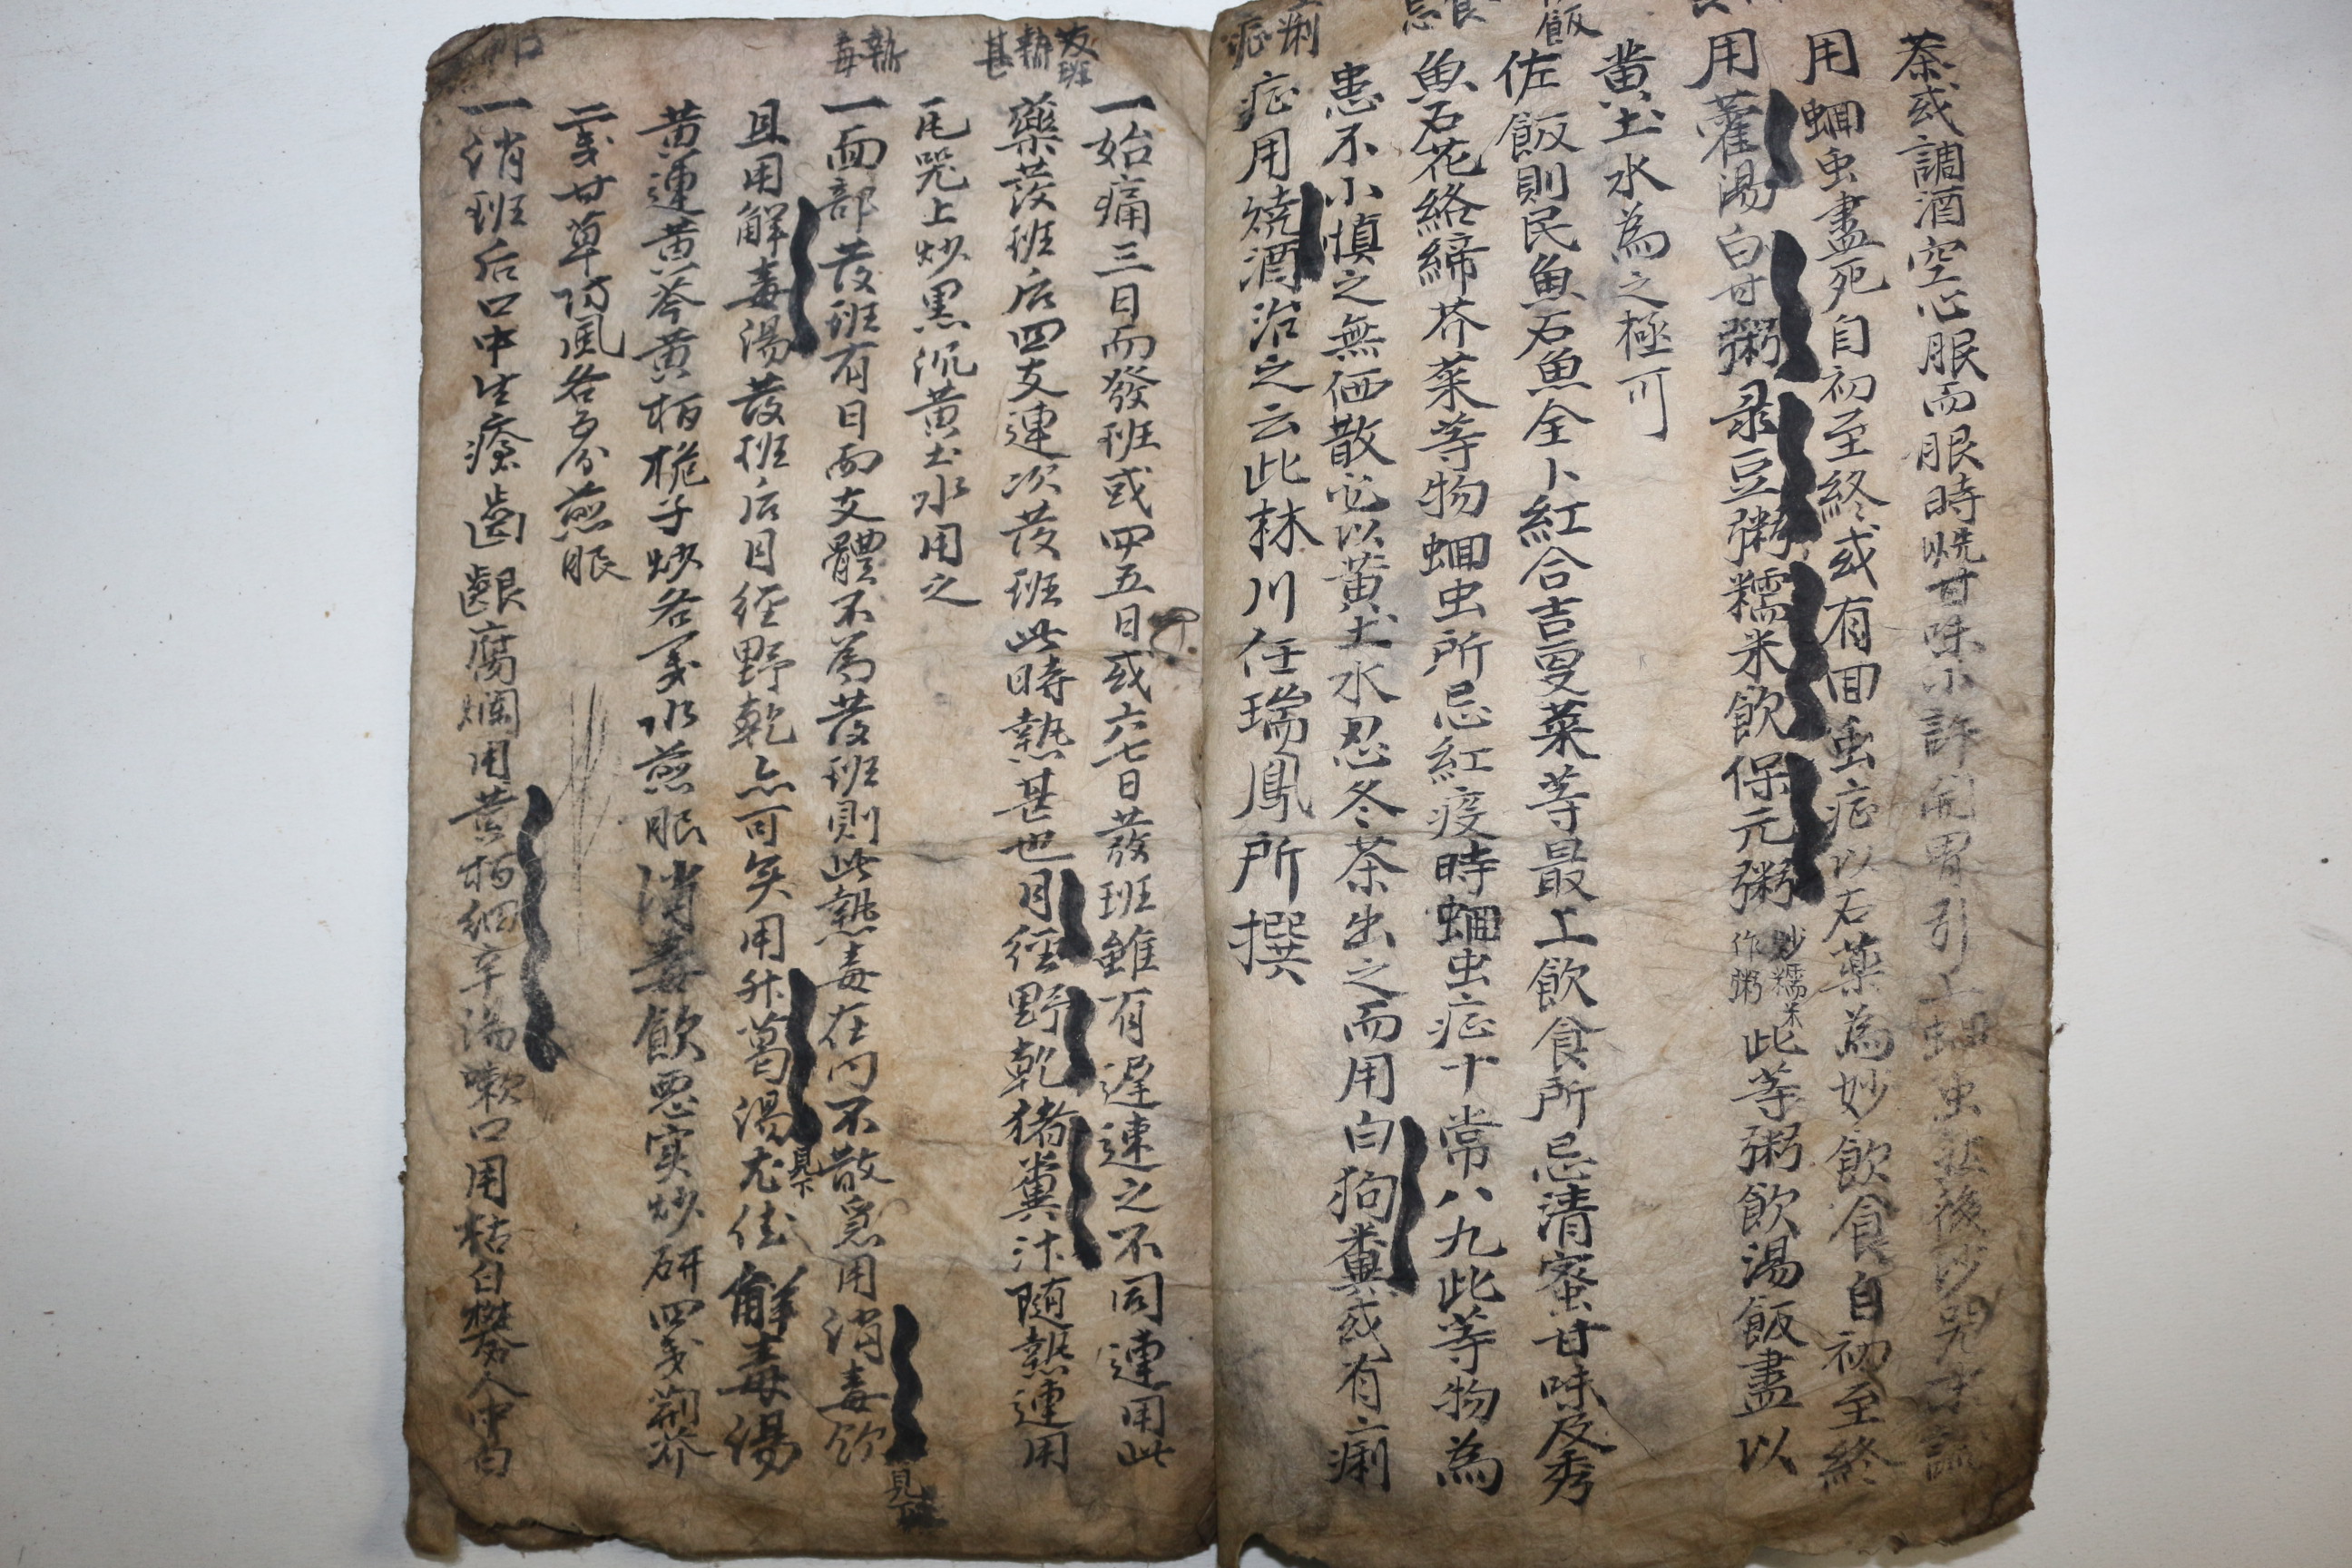 茶或調酒空心服而服時燒甘味小許開胃引上蛔虫
用蛔虫盡死自初至終或有回虫症以石藥為妙飲食自初至終
用藿湯白甘粥彔豆粥糯米飮保元粥炒糯米作粥此等粥飮湯飯盡以
黄土水為之極可
佐飯則民魚石魚全卜紅合吉更菜等最上飮食所忌清蜜甘味及秀
魚石花絡締芥菜等物蛔虫所忌紅疫時蛔虫症十常八九此等物為
患不小慎之無価散必以黃土水忍冬茶出之而用白狗糞或有痢
症用燒酒治之云此林川任瑞鳳所撰
痢症
佐飯
一始痛三日而發班或四五日或六七日發班雖有遲速之不同連用此
藥發班后四支連次發班此時熱甚也月徑野乾猪糞汁隨熱連用
瓦咒上炒黑沉黄土水用之
一面部發班有日而支體不為發班則此熱毒在內不散急用消毒飮見
且用解毒湯發班后月徑野乾亦可矣用升葛湯見下尤佳解毒湯
黄連黄芩黄栢梔子炒各一戔水煎服消毒飮惡实炒研四戔荊芥
二戔甘草防風各五分煎服
一消班后口中生瘡齒齦腐爛用黄栢細辛湯嗽口用枯白礬人中白
發班熱甚
熱毒